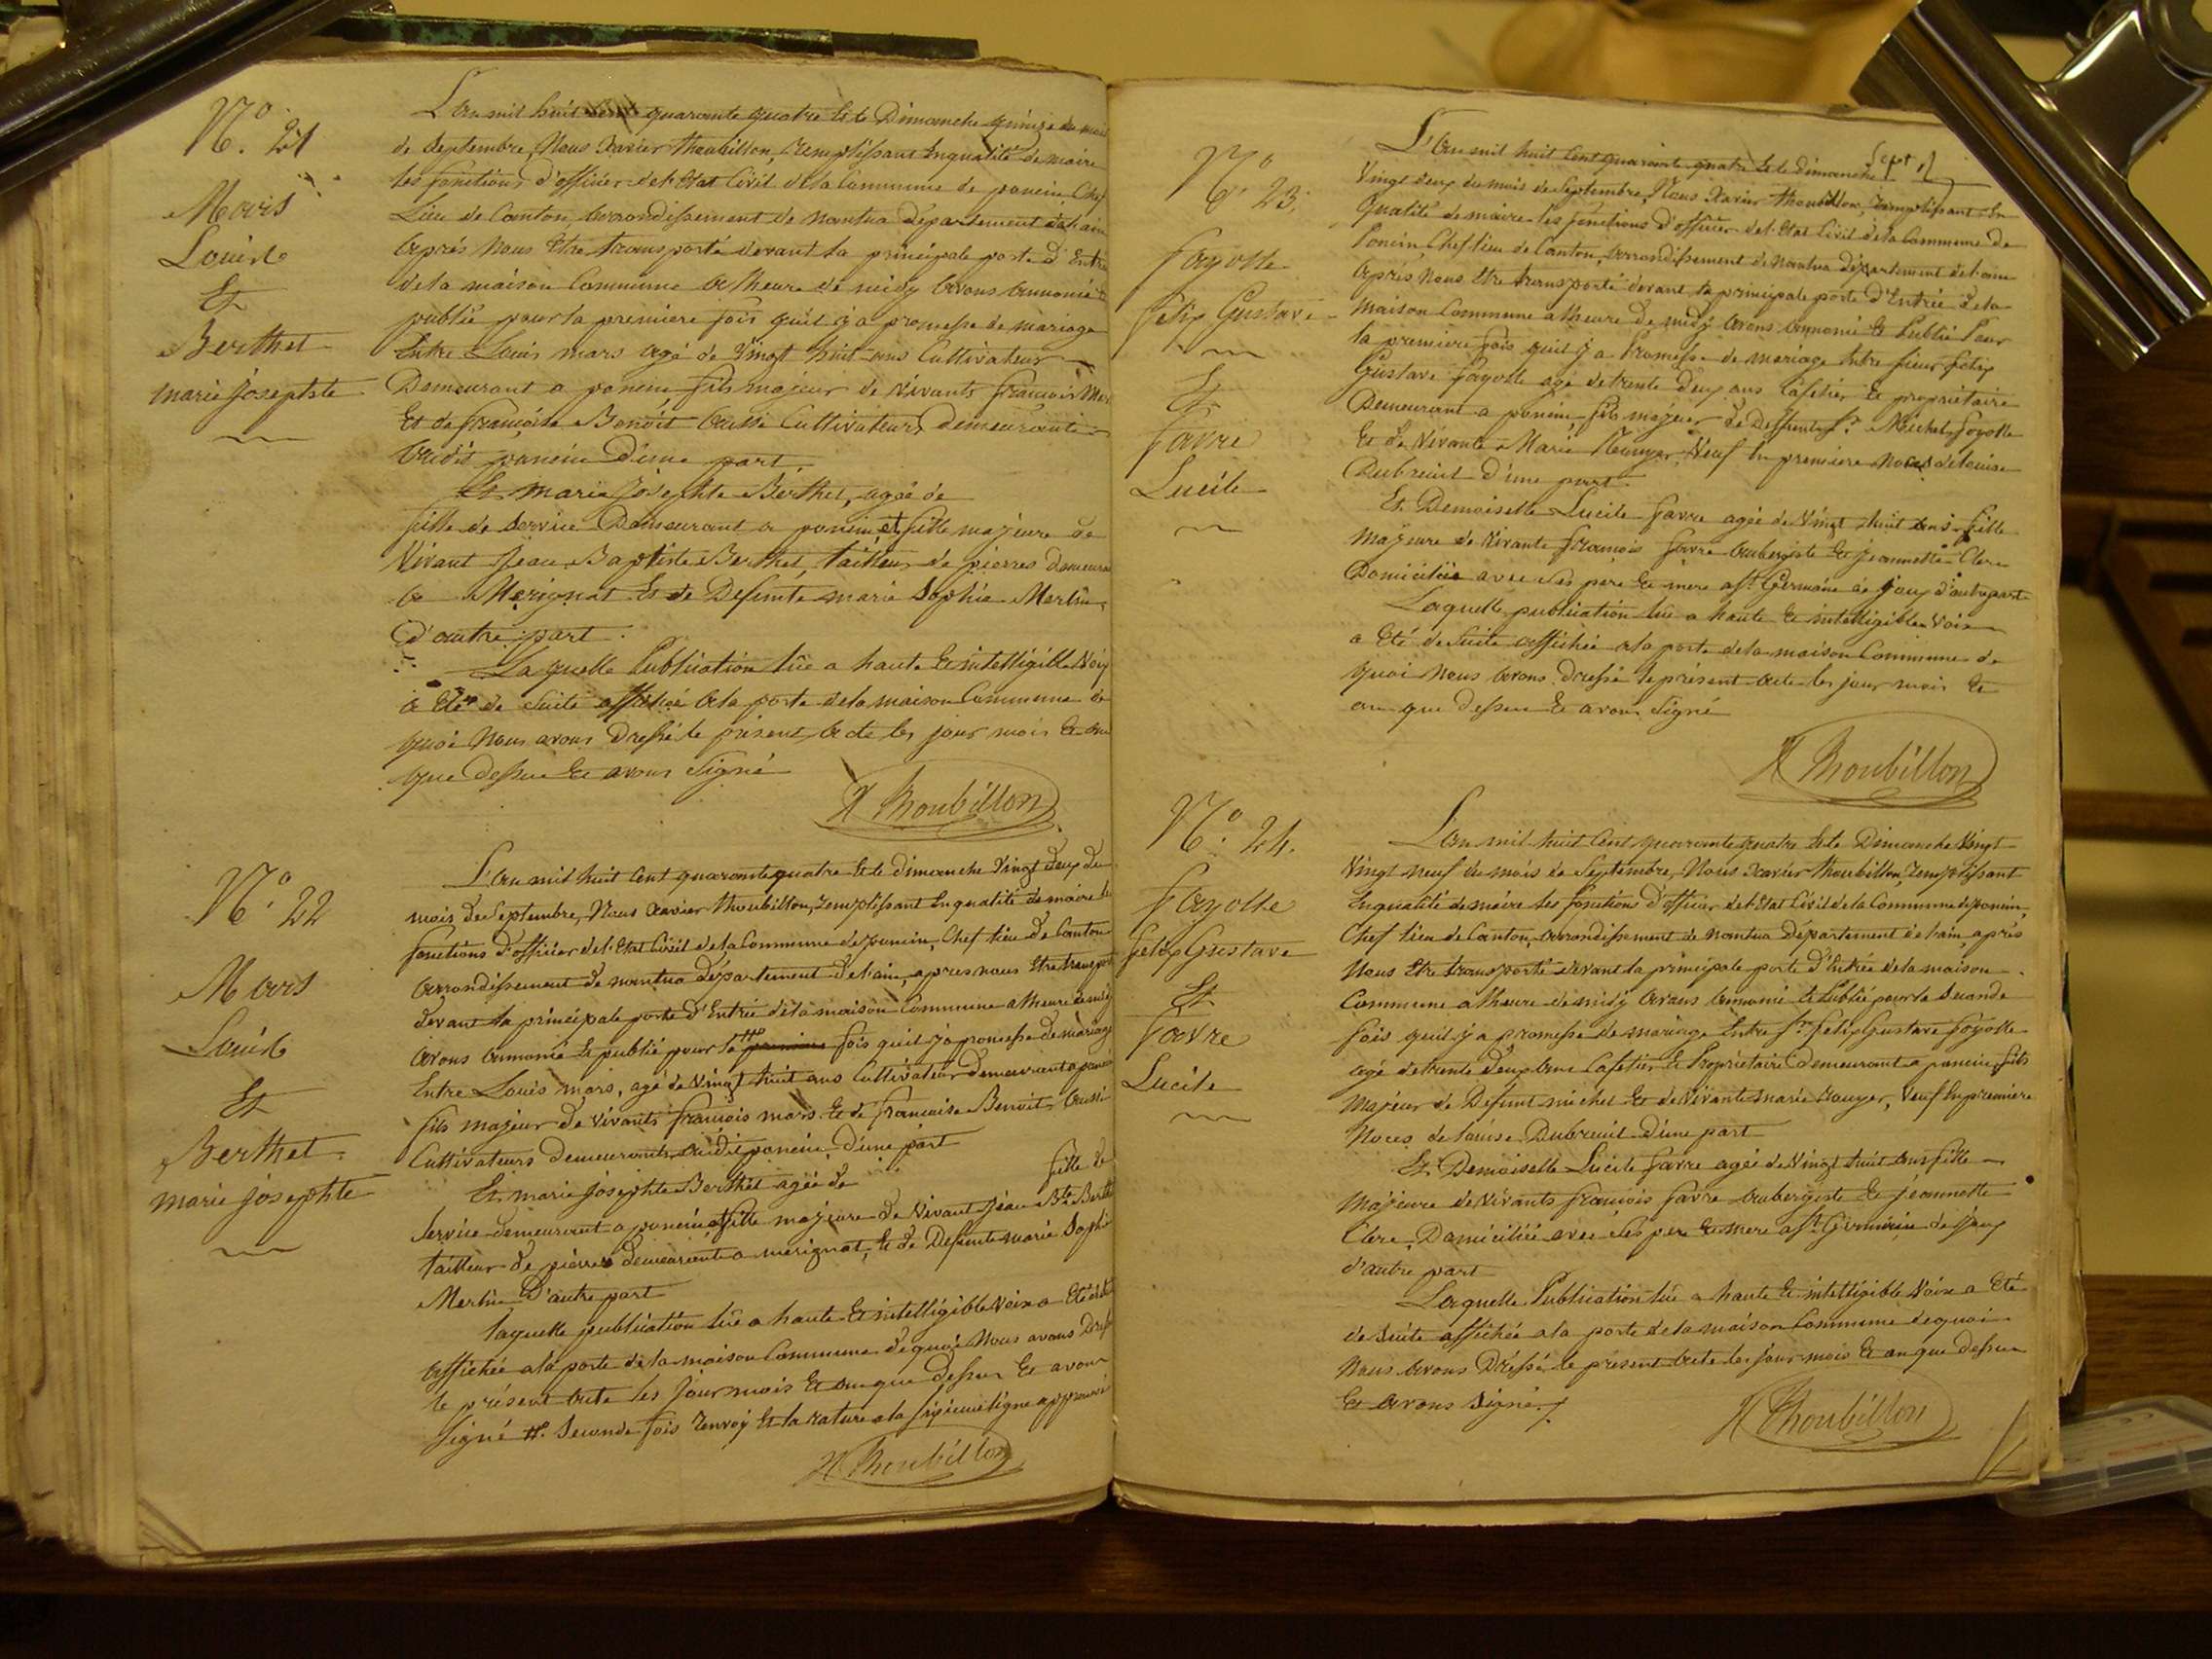 N.º 21
Mars
Louis
Et
Berthet
marie josephte
L'an mil huit cent quarante quatre et le Dimanche quinze du mois
de Septembre, Nous Xavier thoubillon, remplissant En qualité de maire
les fonctions d'officier de l'Etat Civil de la Commune de poncin, Chef
Lieu de Canton, arrondissement de nantua département de l'ain
après Nous Etre transporté devant la principale porte d'Entrée
de la maison Commune a lheure de midy avons annoncé et
publié pour la premiere fois quil y a promesse de mariage
Entre Louis mars agé de Vingt huit ans Cultivateur
Demeurant a poncin, fils majeur de vivants francois Mars
Et de françoise Benoit aussi Cultivateurs demeurants
audit poncin D'une part.
Et marie Josephte Berthet, agée de
fille de service Demeurant a poncin, et fille majeure de
Vivant Jean Baptiste Berthet, tailleur de pierres demeurant
a Merignat Et de Defunte marie Sophie Merlin,
d'autre part.
La quelle Publication lüe a haute Et intelligible Voix
a Eté de Suite affichée a la porte de la maison Commune de
quoi Nous avons Dressé le présent acte les jour mois Et an
que dessus Et avons Signé
X Thoubillon
N.º 22
Mars
Louis
Et
Berthet
marie josephte
L'an mil huit Cent quarante quatre Et le dimanche Vingt deux du
mois de Septembre, Nous Xavier thoubillon, remplissant En qualité de maire les
fonctions d'officier de l'Etat Civil de la Commune de poncin, Chef lieu de Canton
arrondissement de nantua département de l'ain, apres nous Etre transporté
devant la principale porte d'Entrée de la maison Commune a lheure de midy
avons annoncé Et publié pour la # premiere fois quil y a promesse de mariage
Entre Louis mars, agé de Vingt huit ans Cultivateur demeurant a poncin
fils majeur de vivants francois mars Et de francoise Benoit aussi
Cultivateurs demeurants audit poncin, d'une part
Et marie josephte Berthet agée de fille de
Service demeurant a poncin, et fille majeure de Vivant Jean Bte Berthet
tailleur de pierres demeurant a merignat, Et de Defunte marie Sophie
Merlin D'autre part
laquelle publication lüe a haute Et intelligible Voix a Eté de suite
affichée a la porte de la maison Commune de quoi Nous avons Dressé
le présent acte les jour mois Et an que dessus Et avons
Signé #. Seconde fois renvoy Et la rature a la sixieme ligne approuvé
X Thoubillon
N.º 23.
fayolle
felix Gustave
Et
favre
Lucile
L'an mil huit Cent quarante quatre Et le dimanche
Vingt deux du mois de Septembre, Nous Xavier thoubillon, remplissant En
qualité de maire les fonctions d'officier de l'Etat Civil de la Commune de
Poncin, Chef lieu de Canton, arrondissement de nantua département de l'ain
après Nous Etre transporté devant la principale porte d'Entrée de la
maison Commune a lheure de midy avons annoncé Et Publié Pour
la premiere fois quil y a Promesse de mariage Entre sieur felix
Gustave fayolle agé de trente deux ans Cafetier Et propriétaire
Demeurant a poncin, fils majeur de Deffunt Sr. Michel fayolle
Et de Vivante Marie Rouyer, Veuf En premiere Noces de Louise
Dubreuil D'une part.
Et Demoiselle Lucile favre agée de Vingt huit ans fille
Majeure de Vivants françois favre aubergiste Et jeannette Clerc
Domiciliée avec Ses pere Et mere a St. Germain de joux d'autre part
Laquelle publication lüe a haute Et intelligible Voix
a Eté de Suite affichée a la porte de la maison Commune de
quoi Nous avons Dressé le présent acte les jour mois Et
an que dessus Et avons Signé
X Thoubillon
N.º 24.
fayolle
felix Gustave
Et
favre
Lucile
L'an mil huit Cent quarante quatre Et le Dimanche Vingt
Vingt neuf du mois de Septembre, Nous Xavier thoubillon, remplissant
En qualité de maire les fonctions d'officier de l'Etat Civil de la Commune de poncin,
Chef lieu de Canton, arrondissement de nantua Département de l'ain, après
Nous Etre transporté devant la principale porte d'Entrée de la maison
Commune a lheure de midy avons annoncé Et Publié pour la Seconde
fois quil y a promesse de mariage Entre Sr. felix Gustave fayolle
agé de trente deux ans Cafetier Et Propriétaire Demeurant a poncin, fils
Majeur de Defunt michel Et de Vivante marie rouyer, Veuf En premiere
Noces de louise Dubreuil d'une part
Et Demoiselle Lucile favre agée de Vingt huit ans fille
Majeure de Vivants françois favre aubergiste Et jeannette
Clerc, Domiciliée avec Ses pere Et mere a St. Germain de joux
d'autre part
Laquelle Publication lüe a haute Et intelligible Voix a Eté
de Suite affichée a la porte de la maison Commune de quoi
Nous avons Dréssé le présent acte les jour mois Et an que dessus
Et avons Signé
X Thoubillon